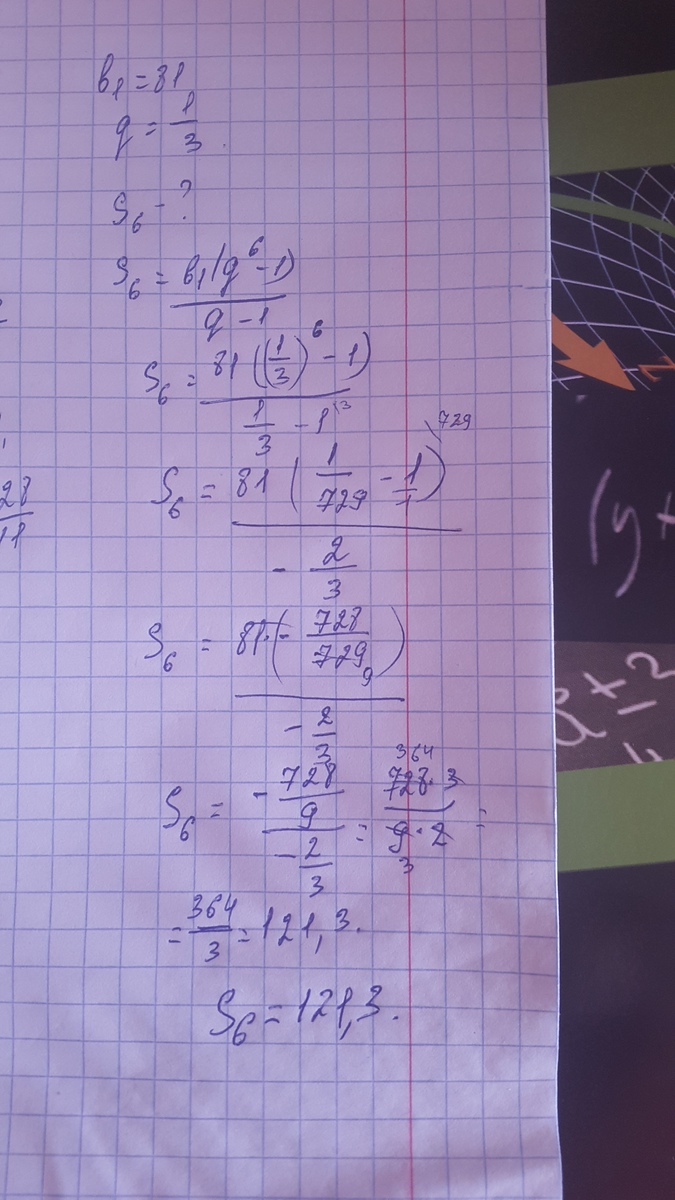 b₁ = 81
q = 1/3.
S₆ - ?
S₆ = b₁(q⁶ - 1) / (q - 1)
S₆ = 81((1/3)⁶ - 1) / (1/3 - 1\3)
S₆ = 81(1/729 - 1/1\729) / (-2/3)
S₆ = 81·(-728/729 9) / (-2/3)
S₆ = (-728/9) / (-2/3) = 364 728·3 / 9·2 3 =
= 364/3 = 121,3.
S₆ = 121,3.
28
11
(y +